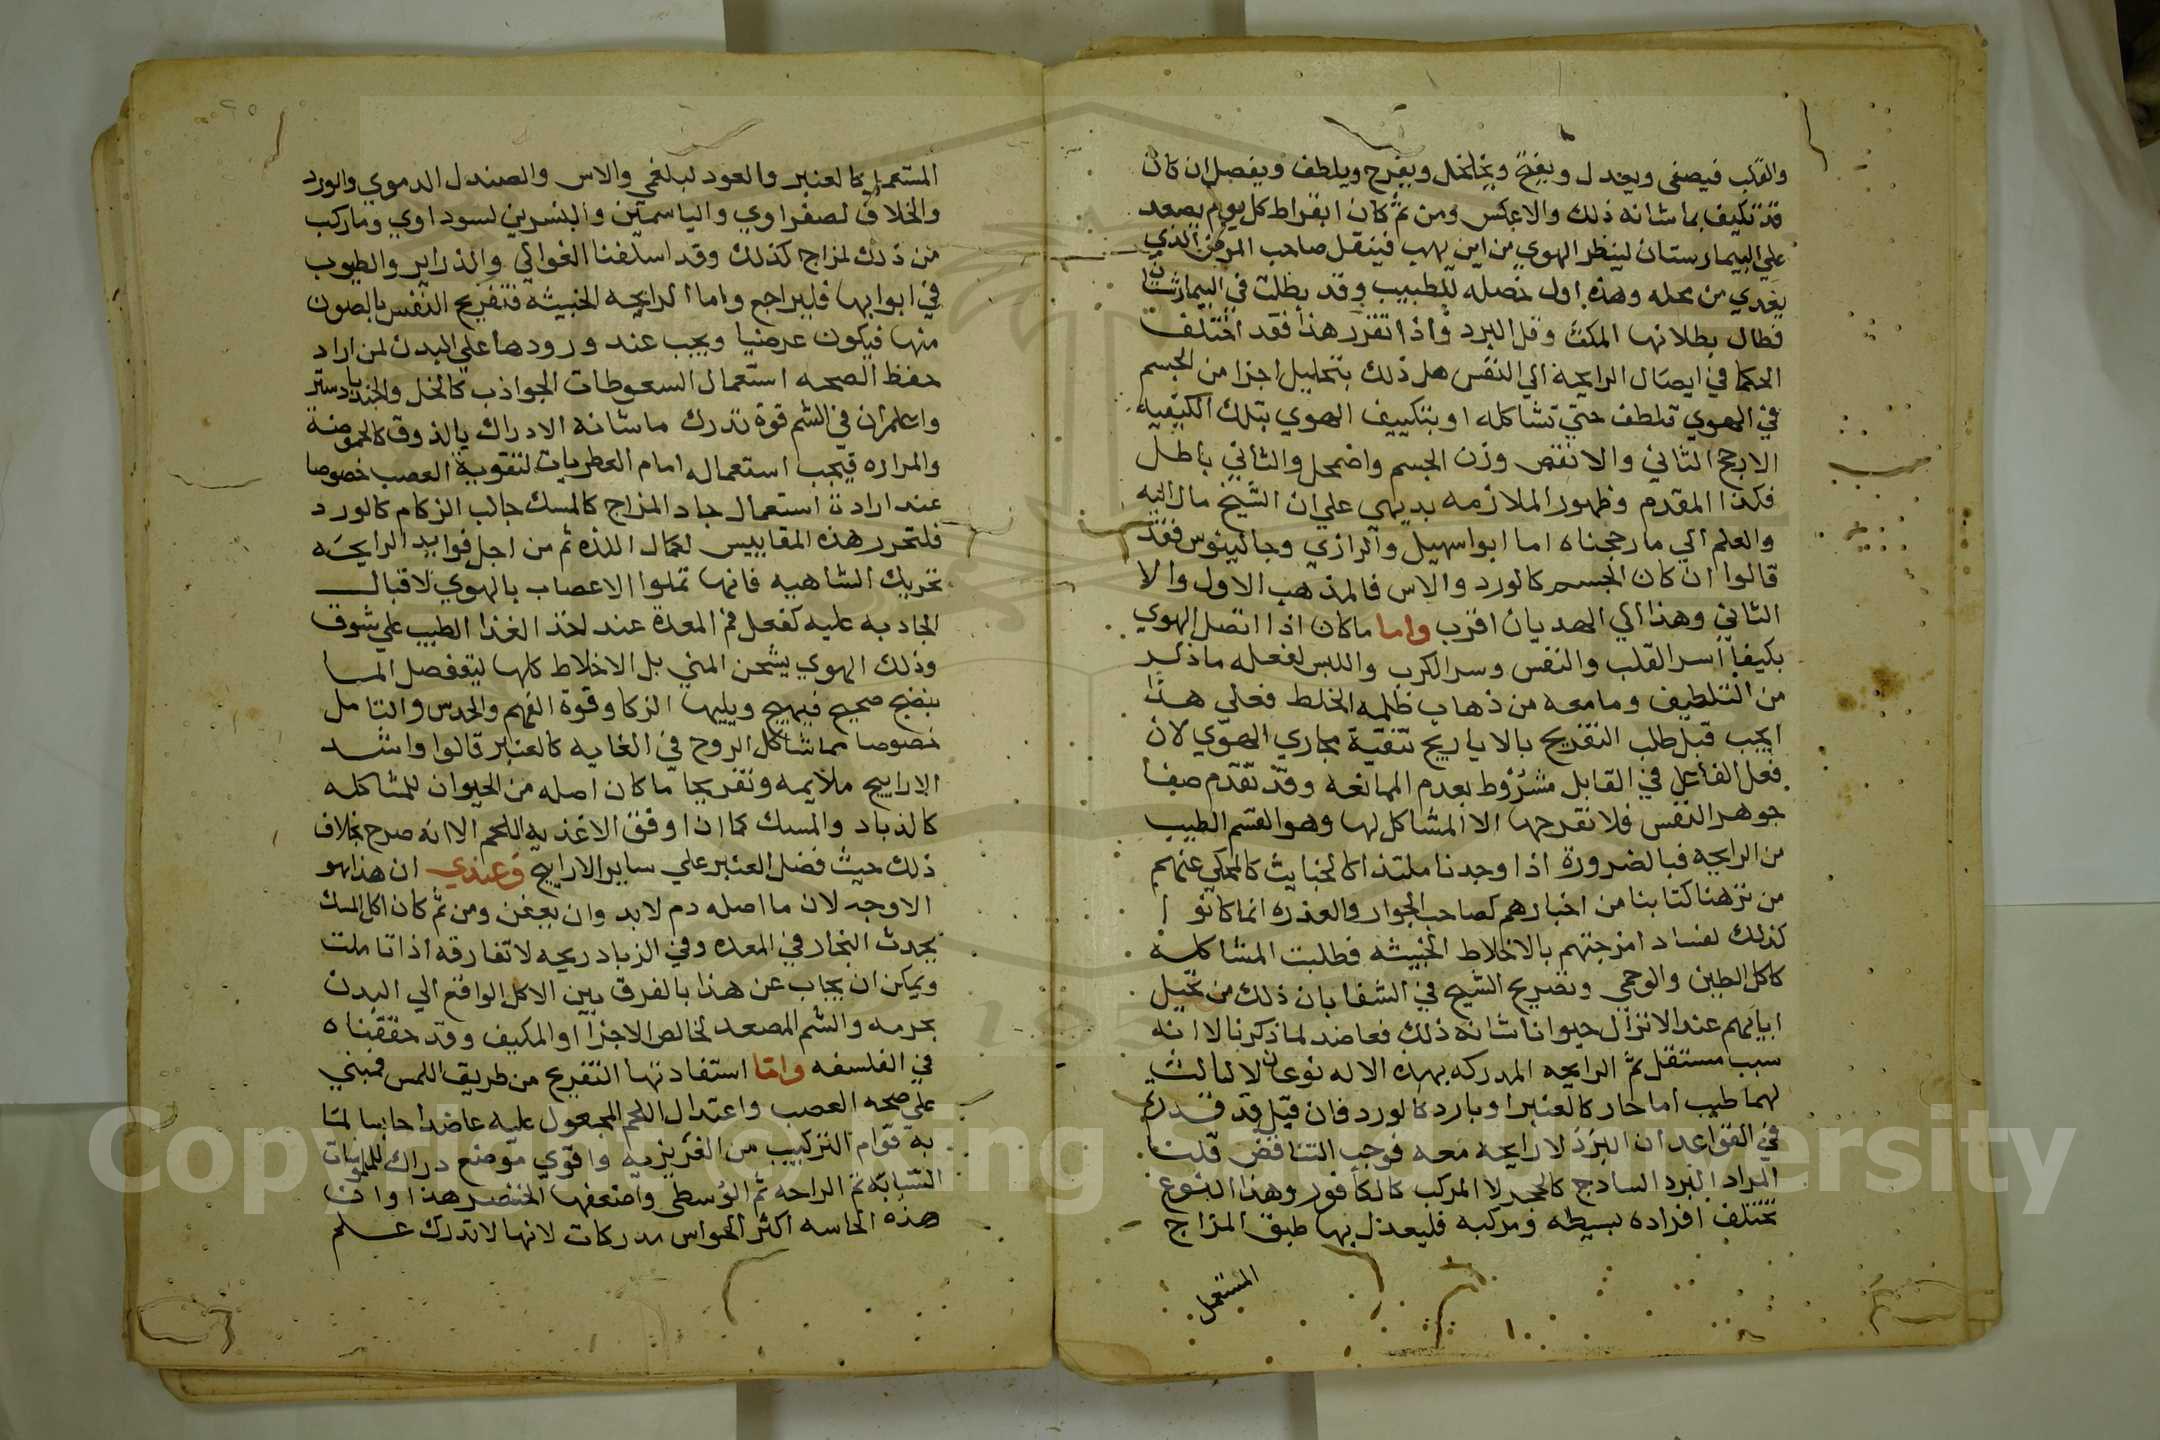 والقلب فيصفى ويعدل ويفتح ويخلخل ويفرح ويلطف ويفصل ان كان
قد تكيف بما شانه ذلك والا عكس ومن ثم كان ابقراط كل يوم يصعد
علي البيمارستان لينظر الهوي من اين يهب فينقل صاحب المرض الذي
يعدي من محله وهذه اول خصله للطبيب وقد بطلت في البيمارستان
فطال بطلانها المكث وقل البرد واذا تقرر هذا فقد اختلف
الحكما في ايصال الرايحة الي النفس هل ذلك بتحليل اجزا من الجسم
في الهوي تلطف حتي تشاكله او بتكييف الهوي بتلك الكيفيه
الارجح الثاني والا نقص وزن الجسم واضمحل والثاني باطل
فكذا المقدم وظهور الملازمه بديهي علي ان الشيخ مال اليه
والعلم الي ما رجحناه اما ابو اسهيل والرازي وجالينوس فقد
قالوا ان كان الجسم كالورد والاس فالمذهب الاول والا
الثاني وهذا الي الهديان اقرب واما ما كان اذا اتصل الهوي
بكيفيا اسر القلب والنفس وسر الكرب واللبس لفعله ما ذكر
من التلطيف وما معه من ذهاب ظلمه الخلط فعلي هذا
ايجب قبل طلب التفريح بالاياريج تنقية مجاري الهوي لان
فعل الفاعل في القابل مشروط بعدم الممانعه وقد تقدم صفا
جوهر النفس فلا تفرحها الا المشاكل لها وهو القسم الطيب
من الرايحه فبالضرورة اذا وجدنا ملتذا كالخبايث كالمحكي عنهم
من نزهنا كتابنا من اخبارهم كصاحب الجوار والعذره انما كانوا
كذلك لفساد امزجتهم بالاخلاط الخبيثه فطلبت المشاكله
كاكل الطين والوحمي وتصريح الشيخ في الشفا بان ذلك من تخيل
ابايهم عند الانزال حيوانا شانه ذلك فعاضد لما ذكرنا لا انه
سبب مستقل ثم الرايحه المدركه بهذه الاله نوعان لا ثالث
لهما طيب اما حار كالعنبر او بارد كالورد فان قيل قد قررت
في القواعد ان البرد لا رايحه معه فوجب التناقض قلنا
المراد البرد الساذج كالحجر لا المركب كالكافور وهذا النوع
تختلف افراده بسيطه ومركبه فليعدل بها طبق المزاج
المستعمل
المستعمل كالعنبر والعود لبلغمي والاس والصندل الدموي والورد
والخلاف لصفراوي والياسمين والنسرين لسوداوي وماركب
من ذلك لمزاج كذلك وقد اسلفنا الغوالي والذراير والطيوب
في ابوابها فليراجع واما الرايحه الخبيثه فتفريح النفس بالصون
منها فيكون عرضيا ويجب عند ورودها علي البدن لمن اراد
حفظ الصحه استعمال السعوطات الجواذب كالخل والجندبادستر
واعلم ان في الشم قوة تدرك ما شانه الادراك بالذوق كالحموضة
والمراره فيجب استعماله امام العطريات لتقوية العصب خصوصا
عند ارادة استعمال حاد المزاج كالمسك جالب الزكام كالورد
فلتحرر هذه المقاييس لكمال اللذه ثم من اجل فوايد الرايحه
تحريك الشاهيه فانها تملوا الاعصاب بالهوي لاقبال
الجاذبه عليه كفعل فم المعدة عند اخذ الغذا الطيب علي شوق
وذلك الهوي يشحن المني بل الاخلاط كلها ليتفصل المسا
بنضج صحيح فيهيج ويليها الزكا وقوة الفهم والحدس والتامل
خصوصا بما شاكل الروح في الغايه كالعنبر قالوا واشد
الاراييح ملايمه وتفريحا ما كان اصله من الحيوان للمشاكله
كالذباد والمسك كما ان اوفق الاغذيه اللحم الا انه صرح بخلاف
ذلك حيث فضل العنبر علي ساير الاراييح وعندي ان هذا هو
الاوجه لان ما اصله دم لابد وان يعفن ومن ثم كان اكل المسك
يحدث البخار في المعده وفي الزباد ريحه لا تفارقه اذا تاملت
ويمكن ان يجاب عن هذا بالفرق بين الاكل الواقع الي البدن
بجرمه والشم المصعد لخالص الاجزا او المكيف وقد حققناه
في الفلسفه واما استفادتها التفريح من طريق اللمس فمبني
علي صحه العصب واعتدال اللحم المجعول عليه عاضدا حابسا لما
به قوام التركيب من الغريزيه واقوي موضع دراك للملموسات
السبابه ثم الراحه ثم الوسطي واضعفها الخنصر هذا وان
هذه الحاسه اكثر الحواس مدركات لانها لا تدرك علم
Copyright © King Saud University